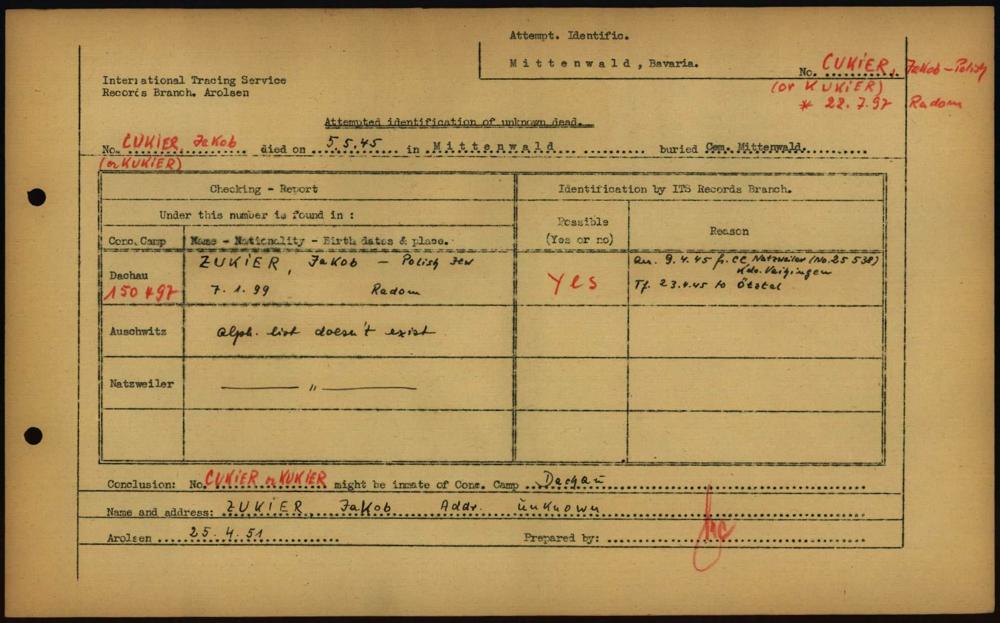 Attempt. Identific.
Mittenwald, Bavaria.
International Tracing Service
Records Branch. Arolsen
No. CUKIER, Jakob - Polish
(or KUKIER)
* 22.7.97 Radom
Attempted identification of unknown dead.
No. CUKIER Jakob died on 5.5.45 in Mittenwald buried Cem. Mittenwald.
(or KUKIER)
Checking - Report
Identification by ITS Records Branch.
Under this number is found in :
Possible
(Yes or no)
Reason
Conc. Camp
Name - Nationality - Birth dates & place.
Dachau
150497
ZUKIER, Jakob - Polish Jew
7.1.99 Radom
Yes
arr. 9.4.45 fr. CC Natzweiler (No. 25 538)
Kdo. Vaihingen
Tf. 23.4.45 to Ötztal
Auschwitz
alph. list doesn't exist
Natzweiler
— " —
Conclusion: No. CUKIER or KUKIER might be inmate of Conc. Camp Dachau
Name and address: ZUKIER, Jakob Addr. unknown
Arolsen 25.4.51
Prepared by: